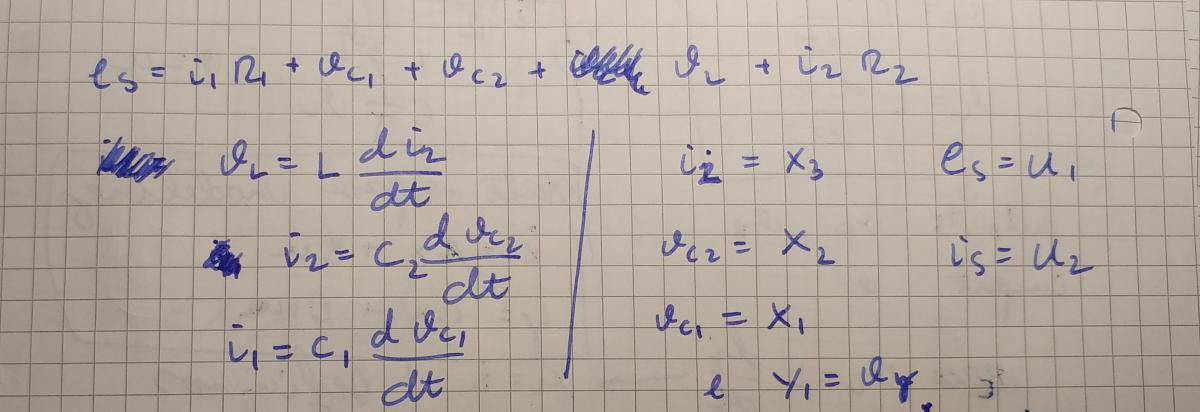 e_s = i_1 R_1 + v_{c_1} + v_{c_2} + v_L + i_2 R_2
v_L = L \frac{d i_2}{dt}
i_2 = C_2 \frac{d v_{c_2}}{dt}
i_1 = C_1 \frac{d v_{c_1}}{dt}
i_2 = x_3
e_s = u_1
v_{c_2} = x_2
i_s = u_2
v_{c_1} = x_1
e y_1 =